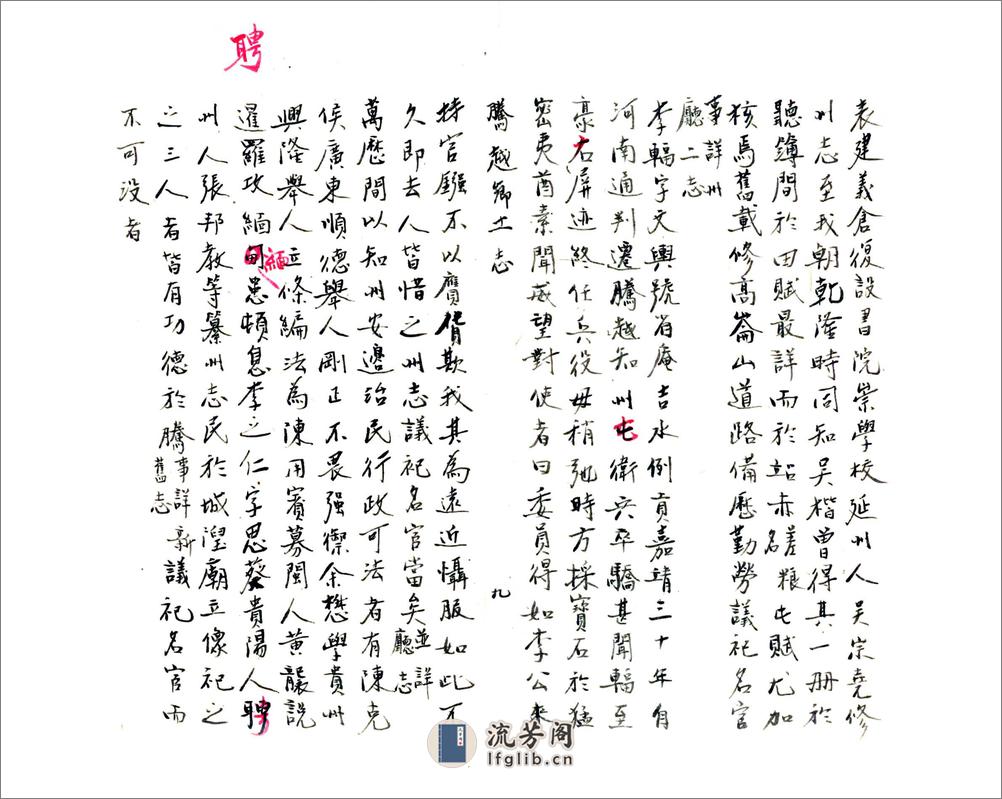 聘
表建義倉復設書院崇學校延州人吴宗堯修
州志至我朝乾隆時同知吴楷曾得其一册於
聽簿間於田賦最詳而於站赤差糧屯賦尤加
核焉舊載修高崙山道路備歷勤勞議祀名官
事詳州
廳二志
李輻字文輿號省庵吉水例貢嘉靖三十年自
河南通判遷騰越知州屯衛兵卒驕甚聞輻至
豪右屏迹終任兵役毋稍弛時方採寶石於猛
密夷酋素聞威望對使者曰委員得如李公來
騰越鄉土志
九
持官鏹不以贋貲欺我其為遠近懾服如此不
久即去人皆惜之州志議祀名官當矣並詳
廳志
萬歷間以知州安邊治民行政可法者有陳克
侯廣東順德舉人剛正不畏强禦余懋學貴州
興隆舉人立條編法為陳用賓募閩人黃龔説
暹羅攻緬甸緬患頓息李之仁字思葵貴陽人聘
聘
州人張邦教等纂州志民於城湟廟立像祀之
之三人者皆有功德於騰事詳新
舊志
議祀名官而
不可没者
流芳阁
lfglib.cn